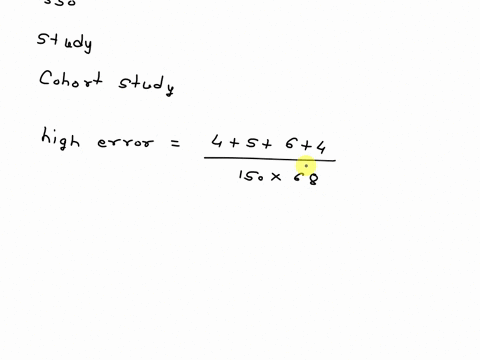 study
Cohort study
high error = 4 + 5 + 6 + 4
150 × 68